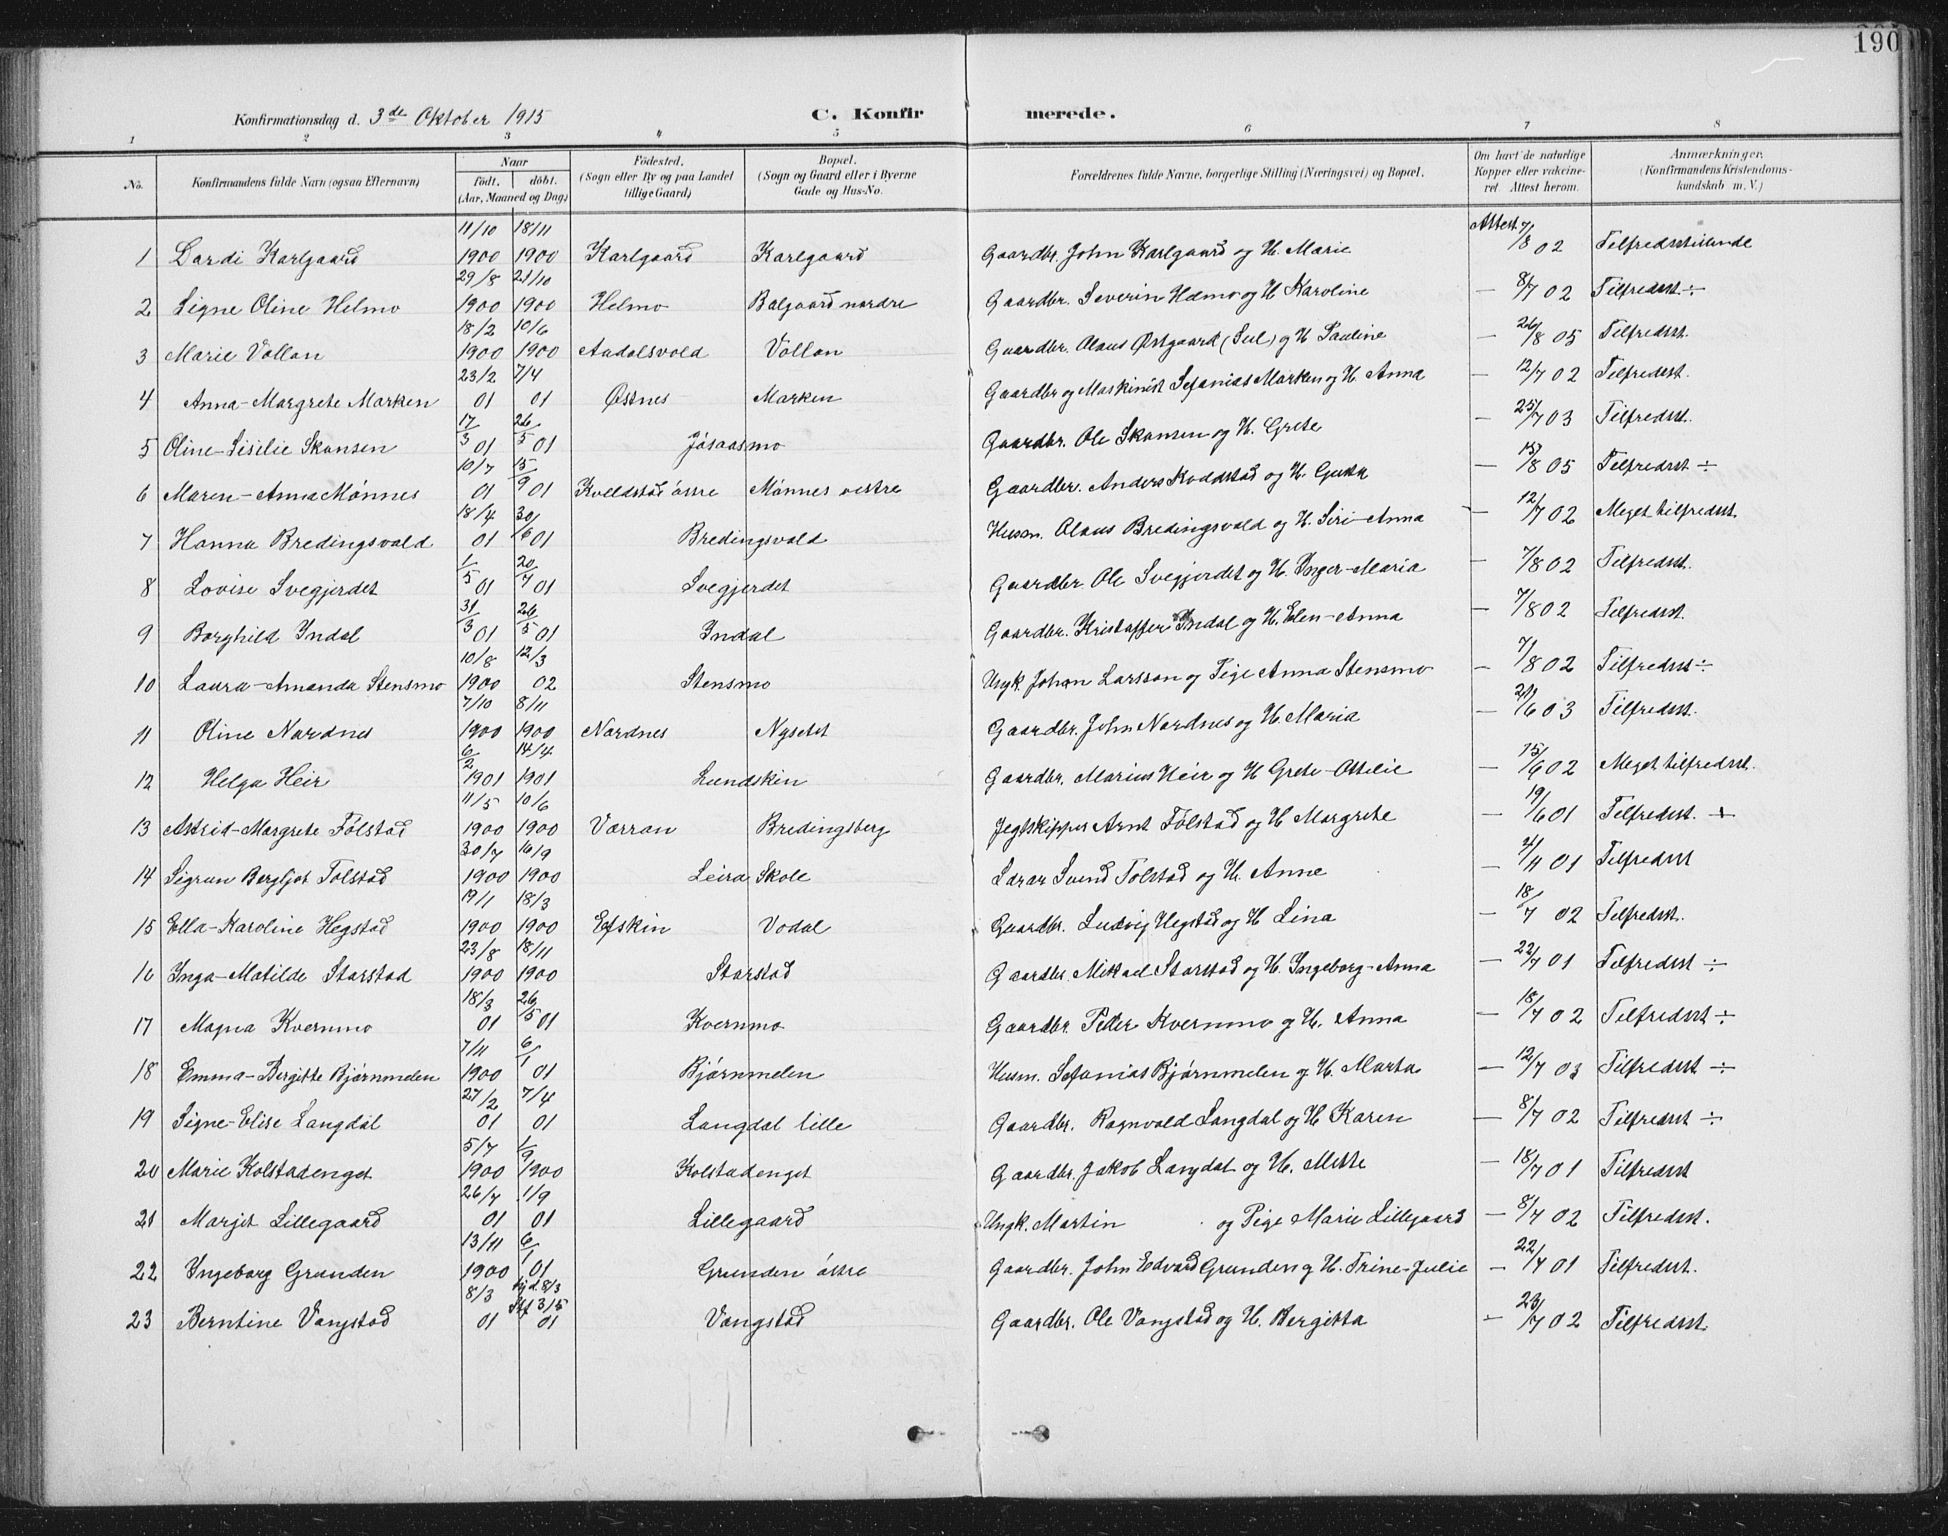 190
Konfirmationsdag d. 3de Oktober 1915 C. Konfirmerede.
1 2 3 4 5 6 7 8
No. Konfirmandens fulde Navn (ogsaa Efternavn) Naar født. døbt. (Aar, Maaned og Dag) Fødested. (Sogn eller By og paa Landet tillige Gaard) Bopæl. (Sogn og Gaard eller i Byerne Gade og Hus-No. Forældrenes fulde Navne, borgerlige Stilling (Næringsvei) og Bopæl. Om havt de naturlige Kopper eller vakcineret Attest herom. Anmærkninger. (Konfirmandens Kristendomskundskab m. V.)
1 Lardi Karlgaard 11/10 1900 18/11 1900 Karlgaard Karlgaard Gaardbr. John Karlgaard og H. Marie Attest 7/8 02 Tilfredsstillende
2 Signe Oline Helmo 29/8 1900 21/10 1900 Helmo Balgaard nordre Gaardbr. Severin Helmo og H. Karoline — 8/7 02 Tilfredsst ÷
3 Marie Vollan 18/2 1900 10/6 1900 Aadalsvold Vollan Gaardbr. Olaus Østgaard (Sul) og H. Pauline — 26/8 05 Tilfredsst.
4 Anna-Margrete Marken 23/2 01 7/4 01 Østnes Marken Gaardbr og Maskinist Sefanias Marken og H. Anna — 12/7 02 Tilfredsst.
5 Oline-Sisilie Skansen 17/3 01 26/5 01 Jøsaasmo Gaardbr. Ole Skansen og H. Grete — 25/7 03 Tilfredsst.
6 Maren-Anna Mønnes 10/7 01 15/9 01 Kveldstad østre Mønnes vestre Gaardbr. Anders og H. — 15/8 05 Tilfredsst ÷
7 Hanna Bredingsvald 18/4 01 30/6 01 Bredingsvald Husm. Olaus Bredingsvald og H. Siri-Anna — 12/7 02 Meget tilfredsst.
8 Lovise Svegjerdet 1/5 01 20/7 01 Svegjerdet Gaardbr. Ole Svegjerdet og H. Inger-Maria — 7/8 02 Tilfredsst.
9 Borghild Indal 31/3 01 26/5 01 Indal Gaardbr. Kristaffer Indal og H. Elen-Anna — 7/8 02 Tilfredsst.
10 Laura-Amanda Stensmo 10/8 1900 12/3 02 Stensmo Ungk. Johan Larsson og Pige Anna Stensmo — 7/8 02 Tilfredsst ÷
11 Oline Nordnes 7/10 1900 8/11 1900 Nordnes Nysetet Gaardbr. John Nordnes og H. Maria — 21/6 03 Tilfredsst.
12 Helga Heir 6/2 1901 14/4 1901 Lundskin Gaardbr. Marius Heir og H Grete-Ottelie — 15/6 02 Meget tilfredsst.
13 Astrid-Margrete Tølstad 11/5 1900 10/6 1900 Værran Bredingsberg Jegtskipper Arnt Følstad og H. Margrete — 19/6 01 Tilfredsst. +
14 Sigrun Bergljot Følstad 30/7 1900 16/9 1900 Leira Skole Lærar Svend Følstad og H. Anne — 4/11 01 Tilfredsst
15 Ella-Karoline Hegstad 19/11 1900 18/3 1900 Efskin Vodal Gaardbr. Ludvig Hegstad og H Lina — 18/7 02 Tilfredsst.
16 Inga-Matilde Storstad 23/8 1900 18/11 1900 Storstad Gaardbr. Mikael Storstad og H. Ingeborg-Anna — 22/7 01 Tilfredsst ÷
17 Magna Kvernmo 18/3 01 26/5 01 Kvernmo Gaardbr. Peder Kvernmo og H. Anna — 18/7 02 Tilfredsst ÷
18 Emma-Bergitte Bjørnmelen 7/11 1900 6/1 01 Bjørnmelen Husm. Sefanias Bjørnmelen og H. Marta — 12/7 03 Tilfredsst ÷
19 Signe-Elise Langdal 27/2 01 7/4 01 Langdal lille Gaardbr. Ragnvald Langdal og H Karen — 8/7 02 Tilfredsst ÷
20 Marie Kolstadenget 5/7 1900 1/9 1900 Kolstadenget Gaardbr. Jakob Langdal og H. Mette — 18/7 01 Tilfredsst
21 Marjit Lillegaard 26/7 01 1/9 01 Lillegaard Ungk. Martin og Pige Marie Lillegaard — 8/7 02 Tilfredsst.
22 Ingeborg Grunden 13/11 1900 6/1 01 Grunden østre Gaardbr. John Edvard Grunden og H. Trine-Julie — 22/7 01 Tilfredsst.
23 Berntine Vangstad 8/3 01 hj.d. 8/3 Stf 3/5 01 Vangstad Gaardbr. Ole Vangstad og H. Bergitta — 23/7 02 Tilfredsst.